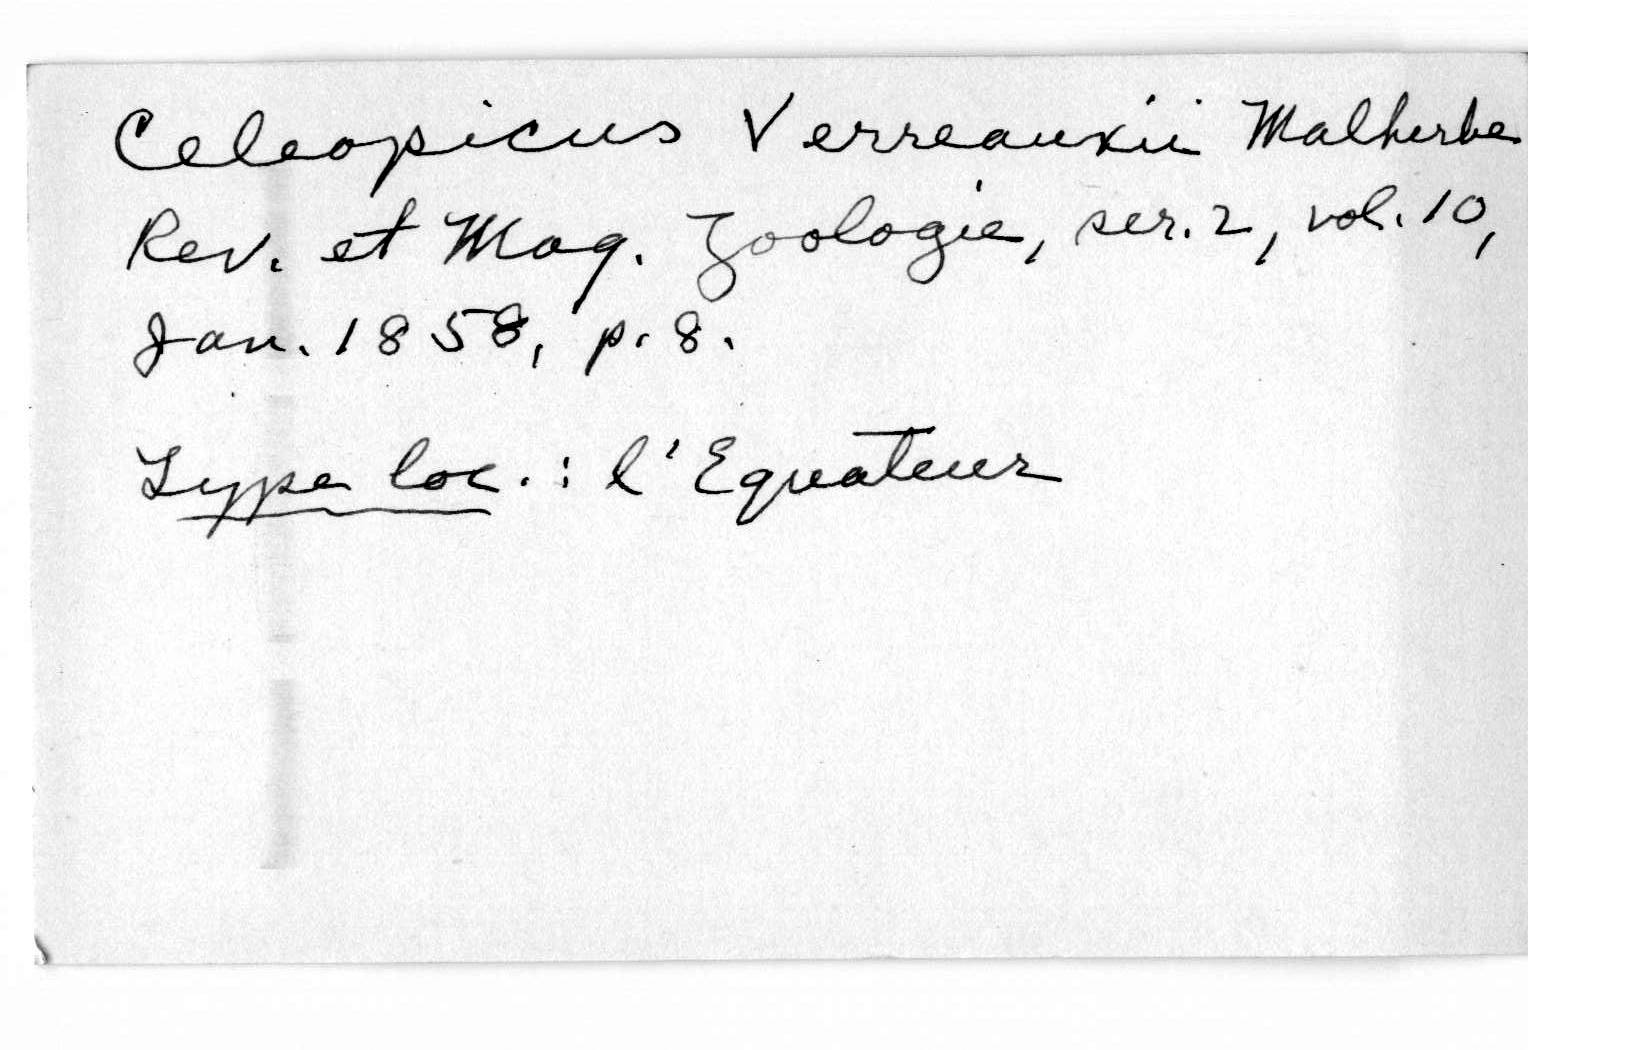 Celeopicus Verreauxii Malherbe
Rev. et Mag. Zoologie, ser. 2, vol. 10,
Jan. 1858, p. 8.
Type loc. : l'Equateur